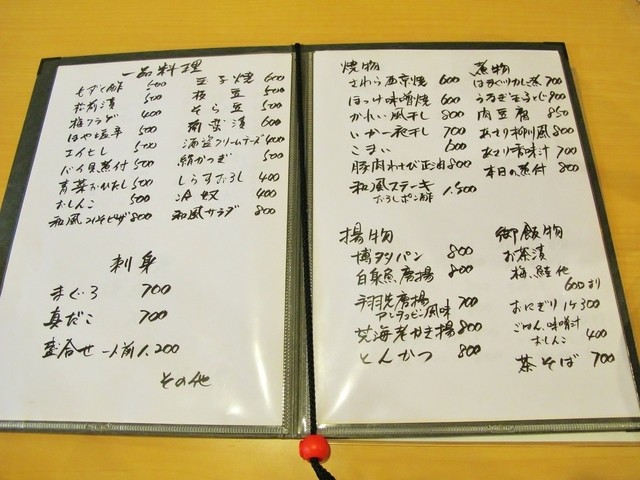 一品料理
もずく酢 500
松前漬 500
梅クラゲ 400
ほや塩辛 500
エイヒレ 500
バイ貝煮付 500
青菜おひたし 500
おしんこ 500
和風ツナピザ 800
玉子焼 600
枝豆 500
そら豆 500
南蛮漬 600
酒盗クリームチーズ 400
絹かつぎ 500
しらすおろし 400
冷奴 400
和風サラダ 800
刺身
まぐろ 700
真だこ 700
盛合せ一人前 1,200
その他
焼物
さわら西京焼 600
ほっけ味噌焼 600
かれい風干し 800
いか一夜干し 700
こまい 600
豚肉わさび正油 800
和風ステーキ
おろしポン酢 1,500
煮物
はまぐりかし煮 700
うなぎ玉子とじ 900
肉豆腐 850
あさり柳川風 800
あさり香味汁 700
本日の煮付 800
揚物
博多パン 800
白身魚唐揚 800
手羽先唐揚 700
アンデスピン風味
荒海老かき揚 800
とんかつ 800
御飯物
お茶漬
梅、鮭 他
600より
おにぎり 1ケ 300
ごはん、味噌汁
おしんこ 400
茶そば 700